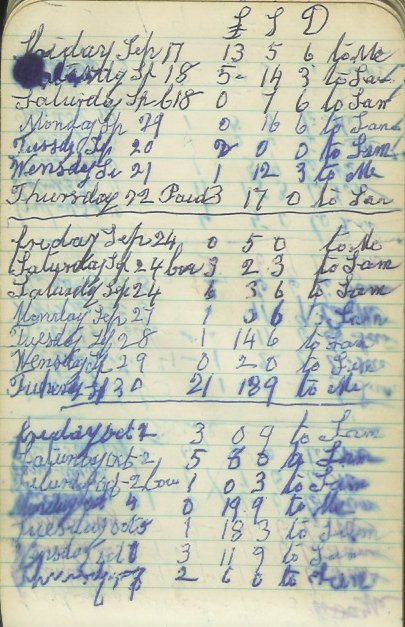 £ S D
Friday Sep 17 13 5 6 to Me
Sp 18 5 - 14 3 to Sam
Saturday Sp 18 0 7 6 to Sam
Monday Sp 0 16 6 to Sam
Tuesdy Sp 20 2 0 0 to Sam
Wensday Se 21 1 12 3 to Me
Thursday 22 Paid 3 17 0 to Sam
Friday Sep 24 0 5 0 to Me
Saturday Sep 24 3 2 3 to Sam
Saturdy Sep 24 6 3 6 to Sam
Monday Sep 27 1 6 Sam
Tuesday Sep 28 1 14 6 to Sam
Wensday Sp 29 0 2 0 to Sam
Sp 30 21 18 9 to Me
Friday oct 3 0 9 to Sam
Saturday oct 2 5 8 0 Sam
oct 2 1 0 3 to Sam
4 0 19 9 to Me
Tuesday oct 5 1 18 3 to Sam
oct 3 11 9 to Sam
2 6 to